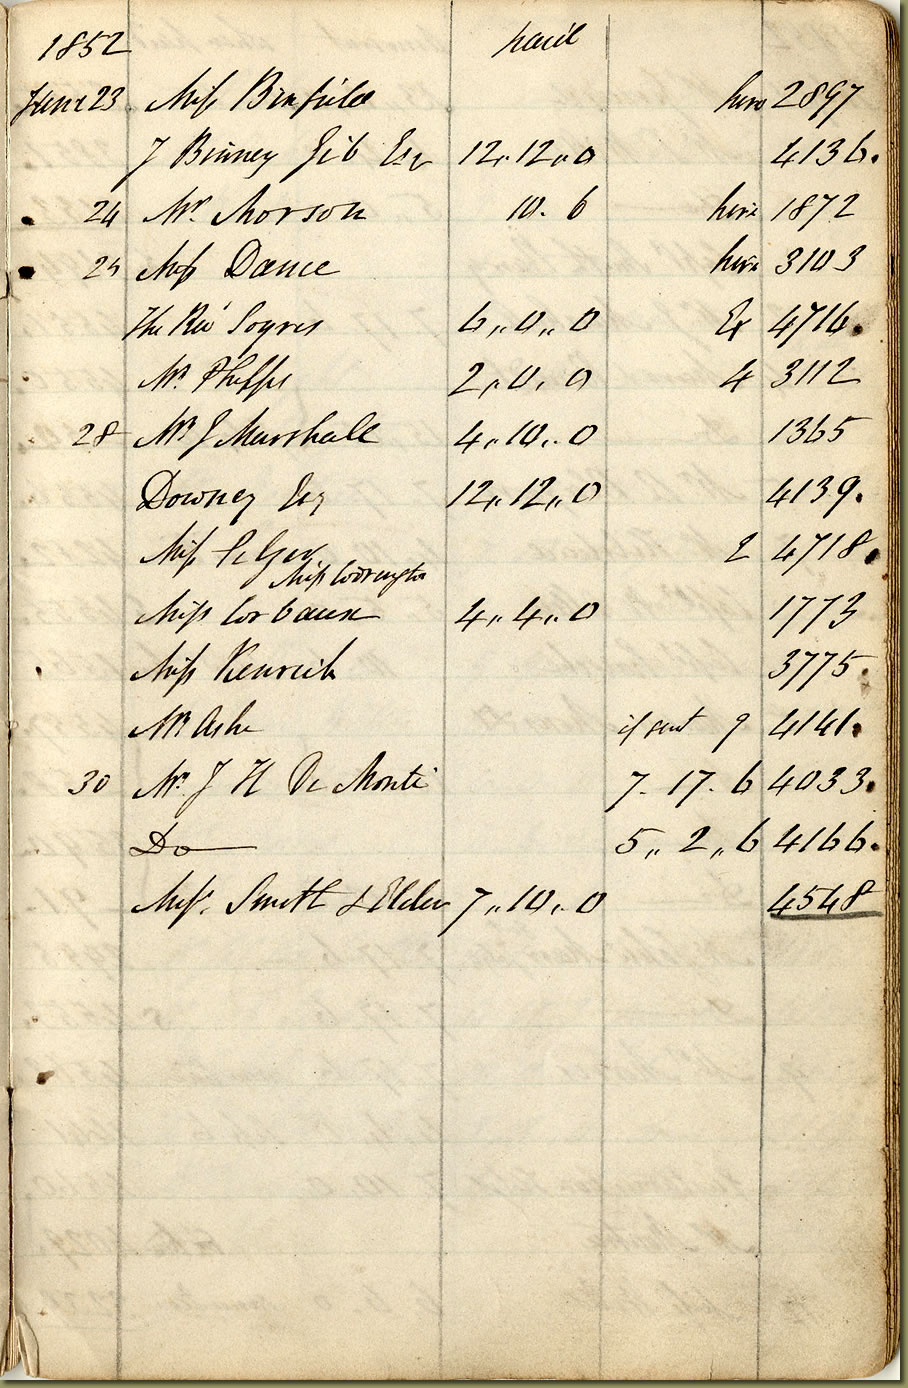 1852 paid
June 23 Miss Binfield hire 2897
J Binney Gib Esq 12,,12,,0 4136.
24 Mr Morson 10. 6 hire 1872
25 Miss Dance hire 3103
The Rev 6,,0,,0 Ex 4716.
Mr Phelps 2,,0,,0 4 3112
28 Mr J Marshall 4,,10,,0 1365
Downey Esq 12,,12,,0 4139.
Miss 2 4718.
Miss
Miss Corbaux 4,,4,,0 1773
Miss Kenrick 3775.
Mr Ashe if sent 9 4141.
30 Mr J H De Monti 7. 17. 6 4033.
Do 5,,2,,6 4166.
Messrs Smith & Elder 7,,10,,0 4548